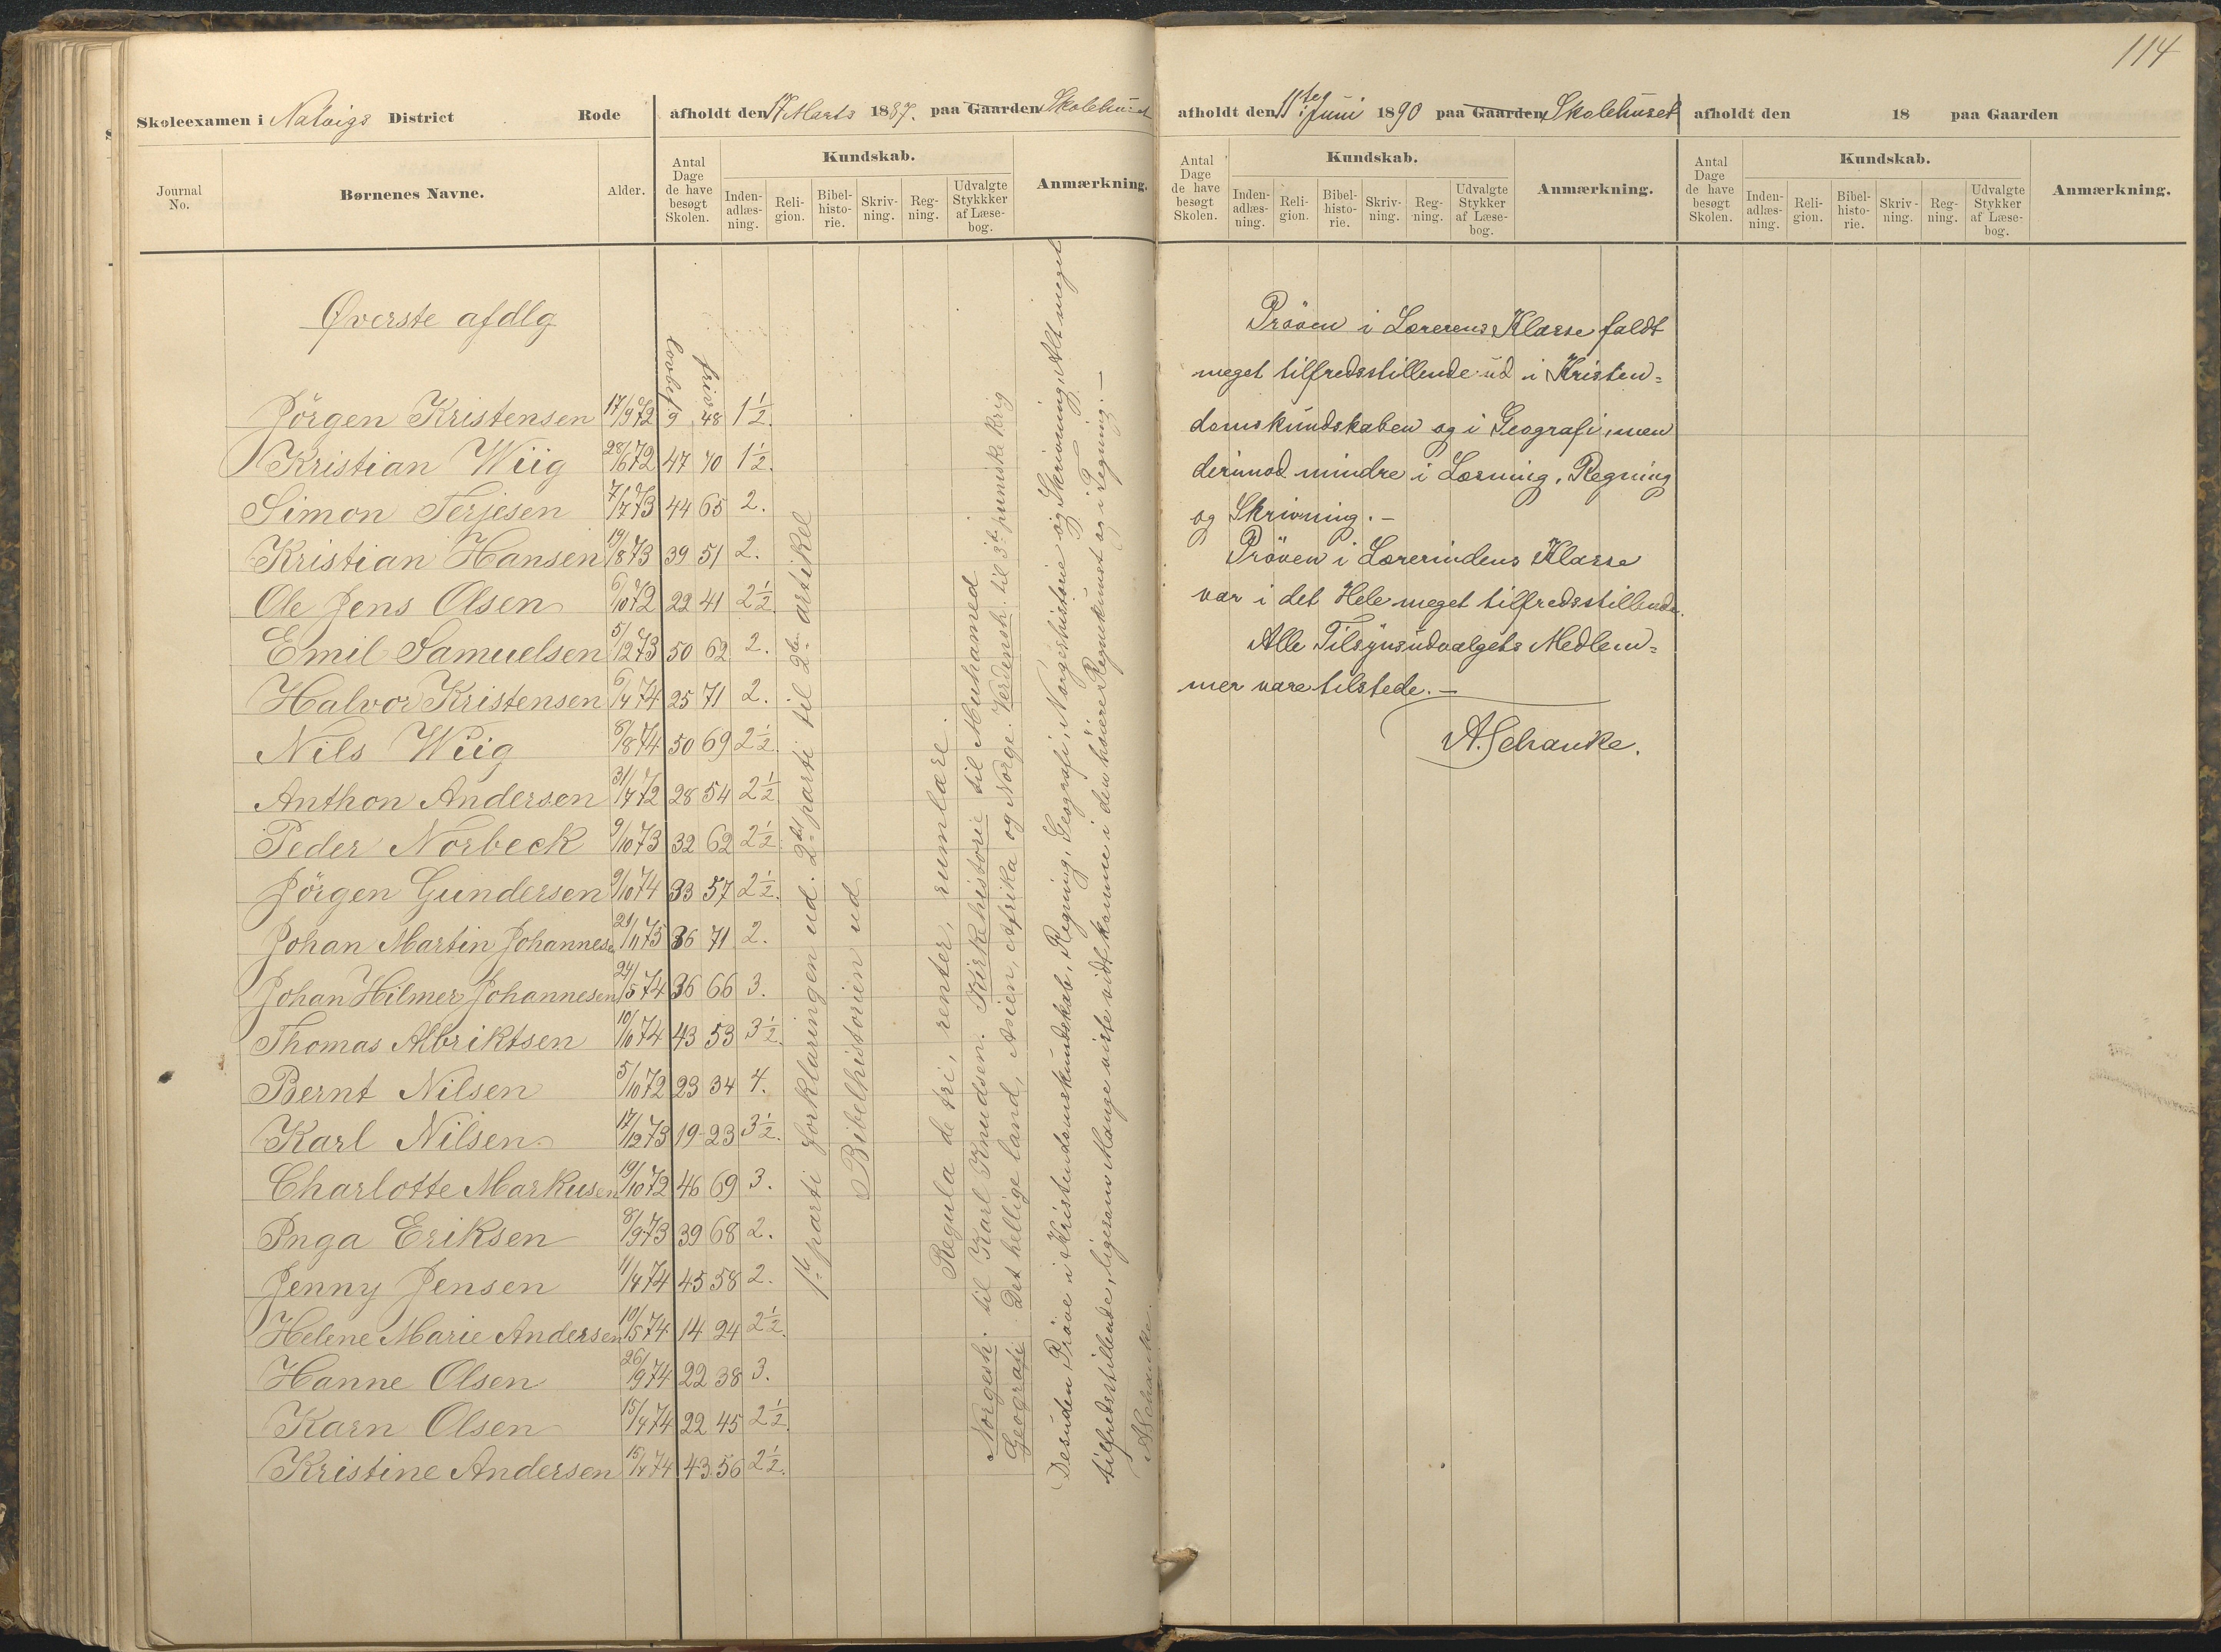 114
Skoleexamen i Natvigs District Rode afholdt den 17 Marts 1887. paa Gaarden Skolehuset
Journal No. Børnenes Navne. Alder. Antal Dage de have besøgt Skolen. Kundskab. Anmærkning.
Inden-adlæs-ning. Reli-gion. Bibel-histo-rie. Skriv-ning. Reg-ning. Udvalgte Stykker af Læse-bog.
Øverste afdlg
lovbft friv.
Jörgen Kristensen 17/9 72 9 48 1½.
Kristian Wiig 28/6 72 47 70 1½.
Simon Terjesen 7/7 73 44 65 2.
Kristian Hansen 19/8 73 39 51 2.
Ole Jens Olsen 6/10 72 22 41 2½
Emil Samuelsen 5/12 73 50 62 2.
Halvor Kristensen 6/4 74 25 71 2.
Nils Wiig 8/8 74 50 69 2½
Anthon Andersen 31/7 72 28 54 2½
Peder Norbeck 9/10 73 32 62 2½
Jörgen Gundersen 9/10 74 33 57 2½.
Johan Martin Johannesen 21/11 75 36 71 2.
Johan Hilmer Johannesen 24/5 74 36 66 3.
Thomas Albriktsen 10/10 74 43 53 3½.
Bernt Nilsen 5/10 72 23 34 4.
Karl Nilsen 17/12 73 19 23 3½.
Charlotte Markusen 19/10 72 46 69 3.
Inga Eriksen 8/9 73 39 68 2.
Jenny Jensen 11/4 74 45 58 2.
Helene Marie Andersen 10/5 74 14 24 2½.
Hanne Olsen 26/9 74 22 38 3.
Karn Olsen 15/4 74 22 45 2½.
Kristine Andersen 15/4 74 43 56 2½.
1ste parti forklaringen ud. 2det parti til 2den artikel
Bibelhistorien ud
Regula de tri, renter, rumlære.
Norgesh. til Karl Knudsen. Kirkehistorie til Muhamed
Geografi. Det hellige land, Asien, Afrika og Norge. Verdensh. til 3die puniske krig
Desuden Prøve i Kristendomskundskab, Regning, Geografi, Norgeshistorie og Skrivning, Alt meget
tilfredsstillende, ligesom Mange viste vidt komne i den høiere Regnekunst og i Tegning.—
A. Schanke.
afholdt den 11te Juni 1890 paa Gaarden Skolehuset
Antal Dage de have besøgt Skolen. Kundskab. Anmærkning.
Inden-adlæs-ning. Reli-gion. Bibel-histo-rie. Skriv-ning. Reg-ning. Udvalgte Stykker af Læse-bog.
Pröven i Lærerens Klasse faldt
meget tilfredsstillende ud i Kristen=
domskundskaben og i Geografi, men
derimod mindre i Læsning, Regning
og Skrivning.—
Pröven i Lærerindens Klasse
var i det Hele meget tilfredsstillende.
Alle Tilsynsudvalgets Medlem=
mer vare tilstede.—
A. Schanke.
afholdt den 18 paa Gaarden
Antal Dage de have besøgt Skolen. Kundskab. Anmærkning.
Inden-adlæs-ning. Reli-gion. Bibel-histo-rie. Skriv-ning. Reg-ning. Udvalgte Stykker af Læse-bog.